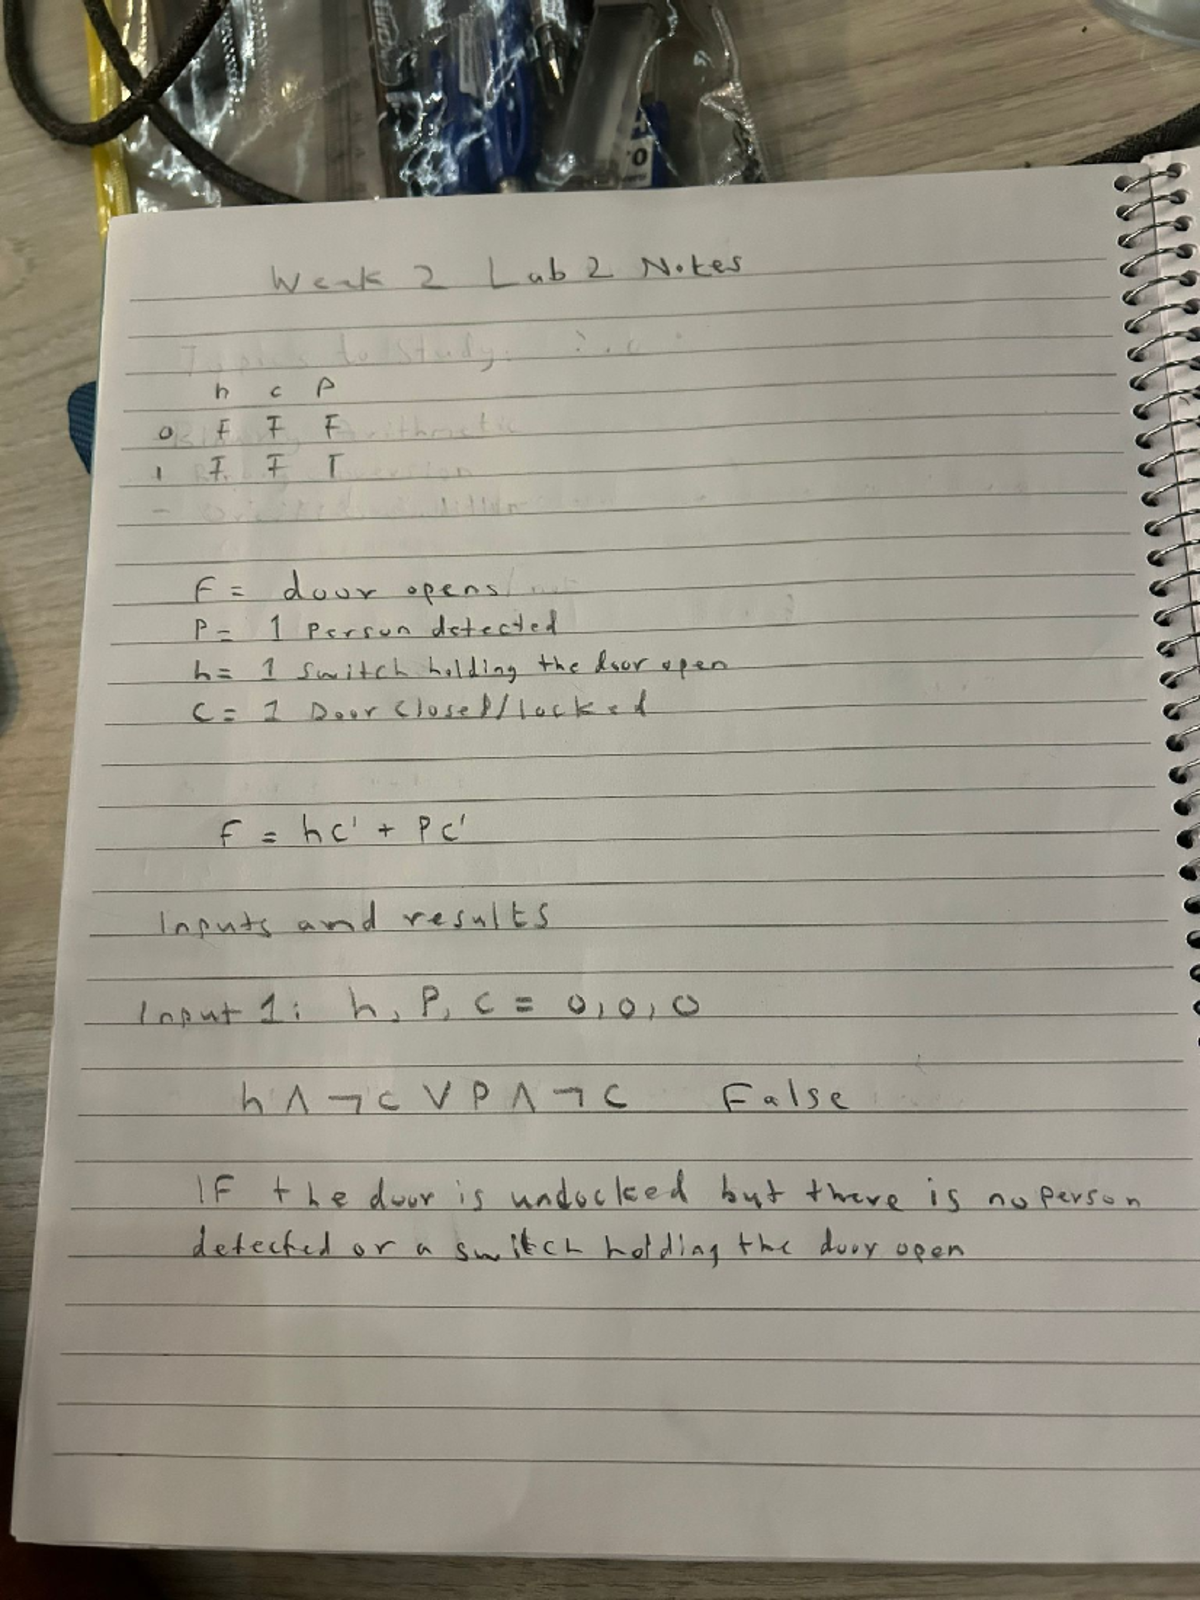 Week 2 Lab 2 Notes
Topics to study:
h c P
0 F F F
1 F F T
F = door opens
P = 1 Person detected
h = 1 Switch holding the door open
C = 1 Door Closed/locked
F = hc' + Pc'
Inputs and results
Input 1: h, P, C = 0, 0, 0
h ∧ ¬c ∨ P ∧ ¬C False
IF the door is unlocked but there is no person
detected or a switch holding the door open